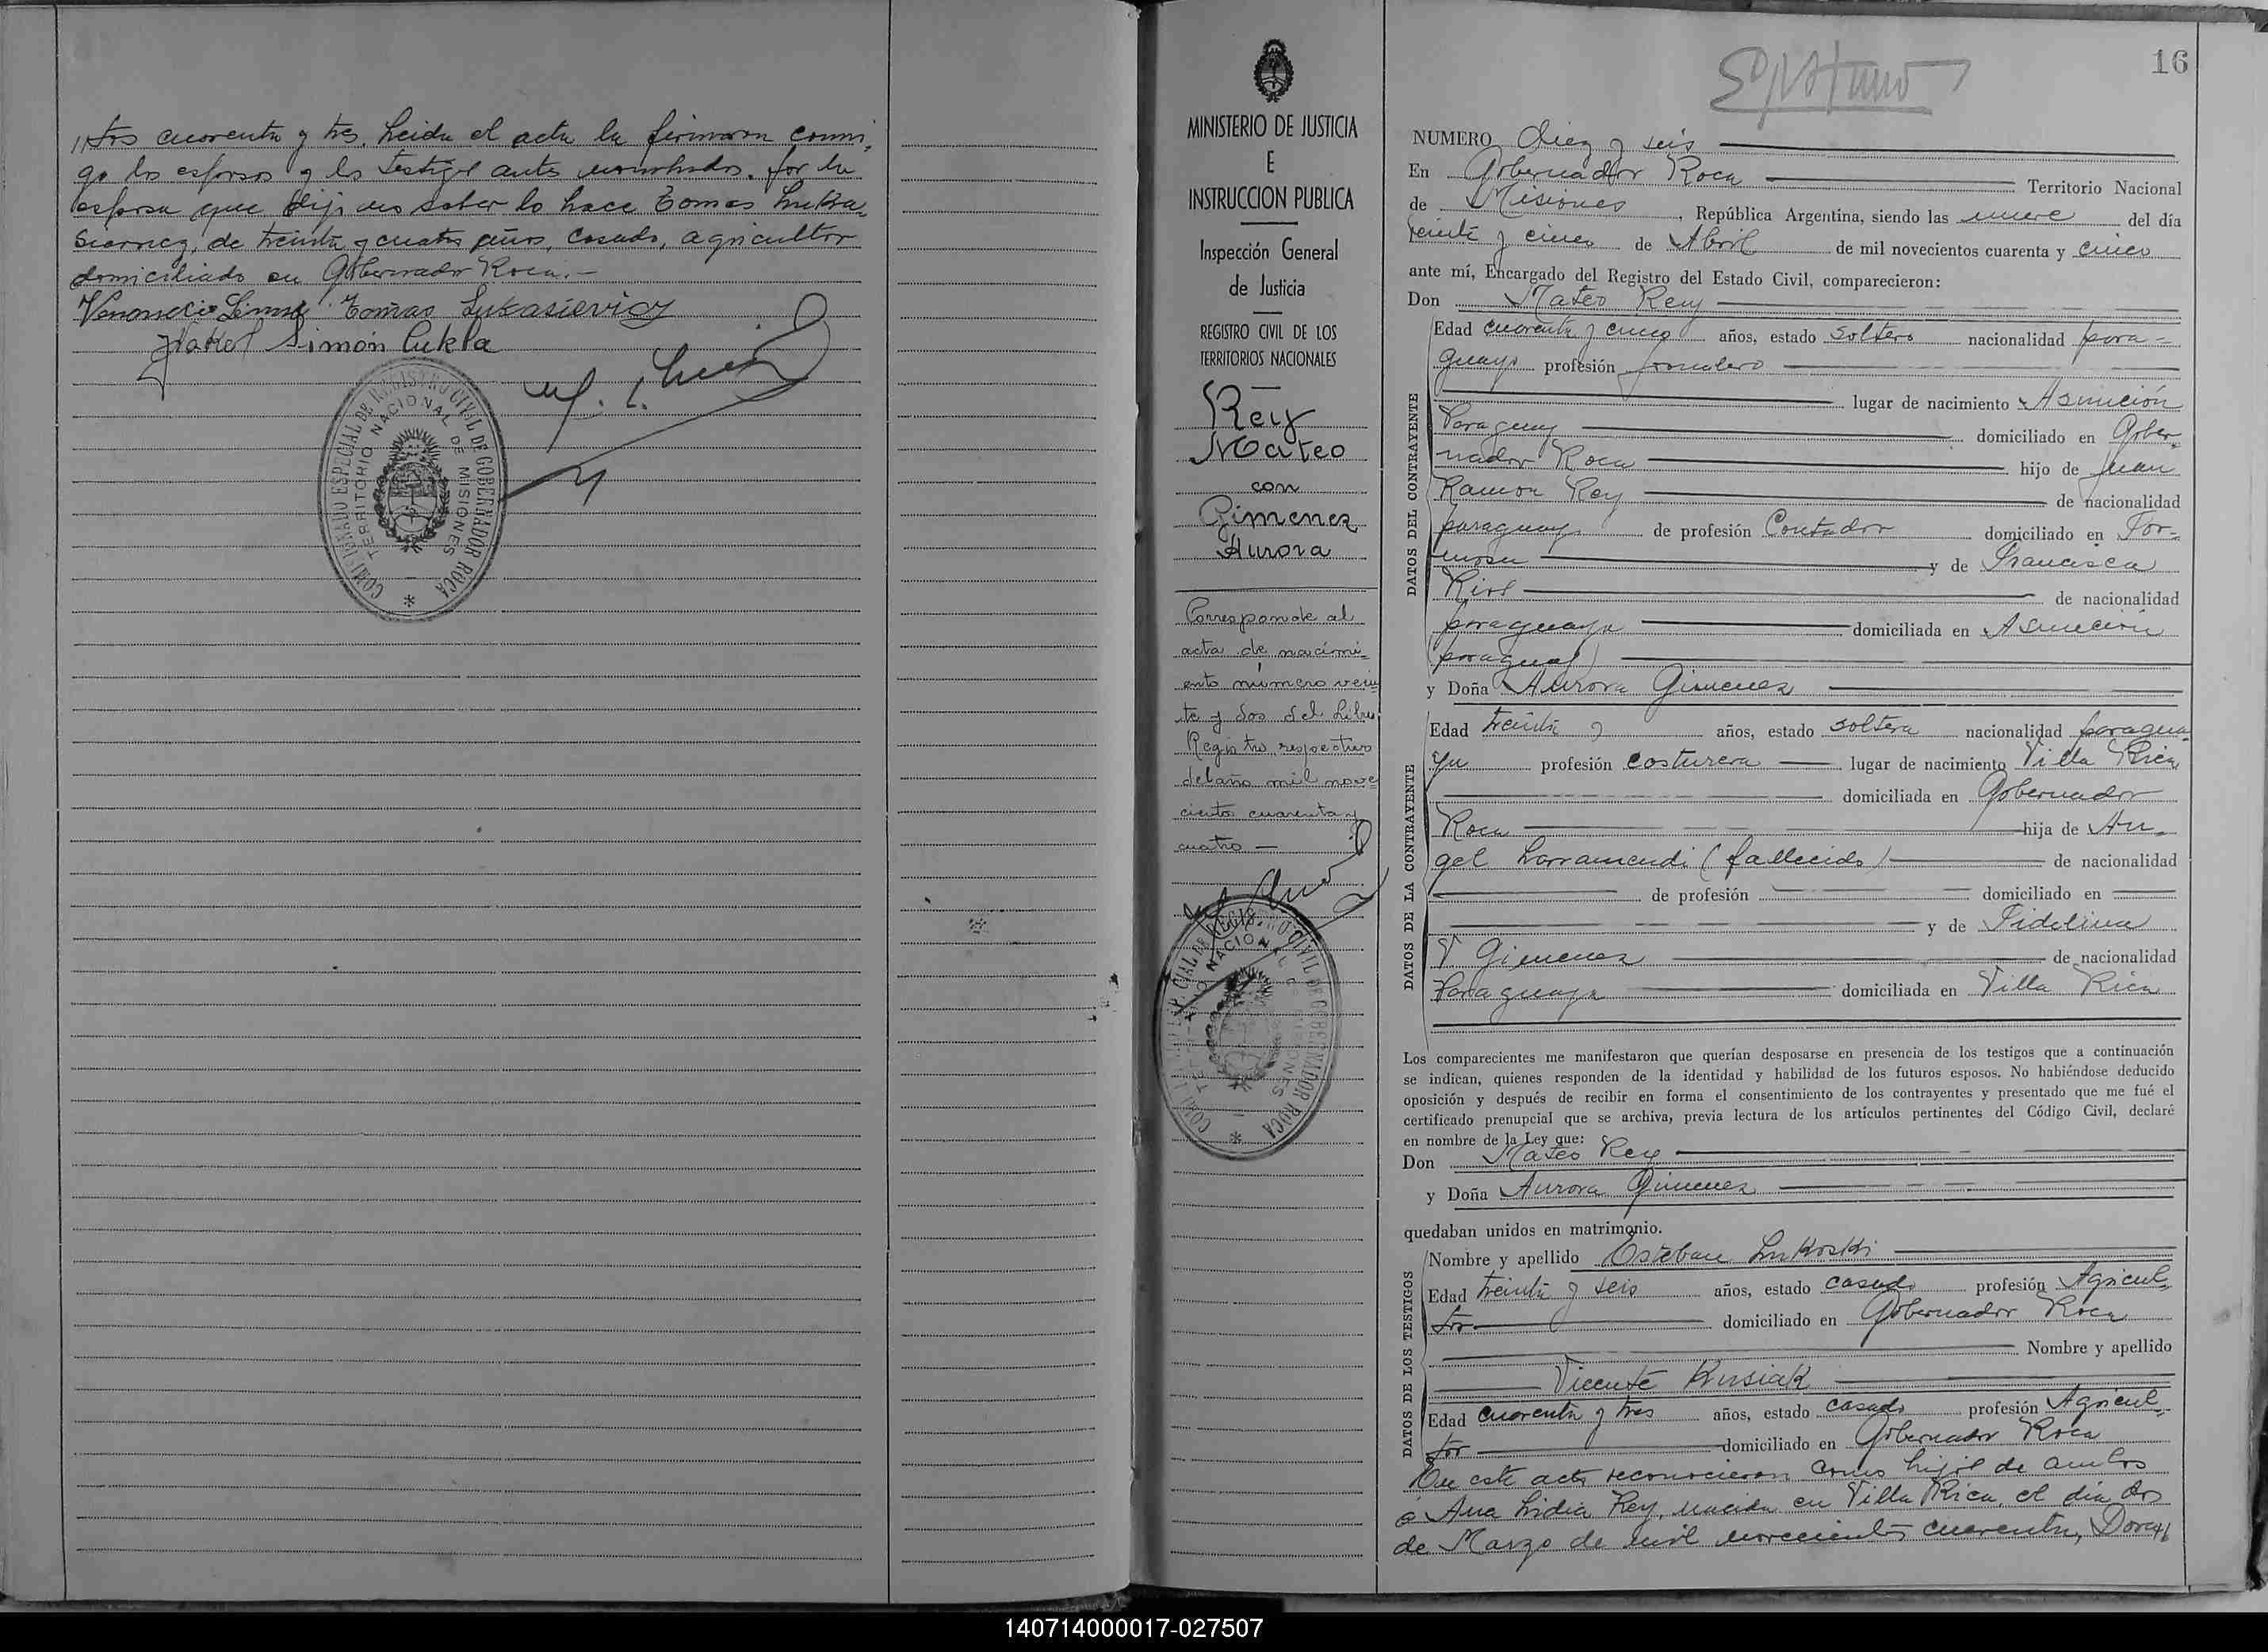 tos cuarenta y tres. Leida el acta la firmaron conmi-
go los esposos y los testigos antes nombrados. Por la
esposa que dijo no saber lo hace Tomas Lukta
de treinta y cuatro años, casado, agricultor
domiciliado en Gobernador Roca.-
Tomas Lukasievicz
Simón Cukla
COMISIONADO ESPECIAL DE REGISTRO CIVIL DE GOBERNADOR ROCA
TERRITORIO NACIONAL DE MISIONES
MINISTERIO DE JUSTICIA
E
INSTRUCCION PUBLICA
Inspección General
de Justicia
REGISTRO CIVIL DE LOS
TERRITORIOS NACIONALES
Rey
Mateo
con
Gimenez
Aurora
Corresponde al
acta de nacimi-
ento número vein
te y dos del Libro
Registro respectivo
del año mil nove
cientos cuarenta y
cuatro —
16
NUMERO Diez y seis
En Gobernador Roca Territorio Nacional
de Misiones, República Argentina, siendo las nueve del día
veinte y cinco de Abril de mil novecientos cuarenta y cinco
ante mí, Encargado del Registro del Estado Civil, comparecieron:
Don Mateo Rey
DATOS DEL CONTRAYENTE
Edad cuarenta y cinco años, estado soltero nacionalidad para-
guayo profesión jornalero
lugar de nacimiento Asunción
Paraguay domiciliado en Gober-
nador Roca hijo de Juan
Ramon Rey de nacionalidad
paraguayo de profesión Contador domiciliado en For-
mosa y de Francisca
Rios de nacionalidad
paraguaya domiciliada en Asunción
(paraguay)
y Doña Aurora Gimenez
DATOS DE LA CONTRAYENTE
Edad treinta y años, estado soltera nacionalidad paragua-
ya profesión costurera lugar de nacimiento Villa Rica
domiciliada en Gobernador
Roca hija de An-
gel Larramendi (fallecido) de nacionalidad
de profesión domiciliado en
y de Fidelina
V Gimenez de nacionalidad
Paraguaya domiciliada en Villa Rica
Los comparecientes me manifestaron que querían desposarse en presencia de los testigos que a continuación
se indican, quienes responden de la identidad y habilidad de los futuros esposos. No habiéndose deducido
oposición y después de recibir en forma el consentimiento de los contrayentes y presentado que me fué el
certificado prenupcial que se archiva, previa lectura de los artículos pertinentes del Código Civil, declaré
en nombre de la Ley que:
Don Mateo Rey
y Doña Aurora Gimenez
quedaban unidos en matrimonio.
DATOS DE LOS TESTIGOS
Nombre y apellido Esteban Lukoski
Edad treinta y seis años, estado casado profesión Agricul-
tor domiciliado en Gobernador Roca
Nombre y apellido
Vicente Kusiak
Edad cuarenta y tres años, estado casado profesión Agricul-
tor domiciliado en Gobernador Roca
En este acto reconocieron como hijos de ambos
a Ana Lidia Rey, nacida en Villa Rica, el día dos
de Marzo de mil novecientos cuarenta, Dora
COMISIONADO ESPECIAL DE REGISTRO CIVIL DE GOBERNADOR ROCA
TERRITORIO NACIONAL DE MISIONES
140714000017-027507